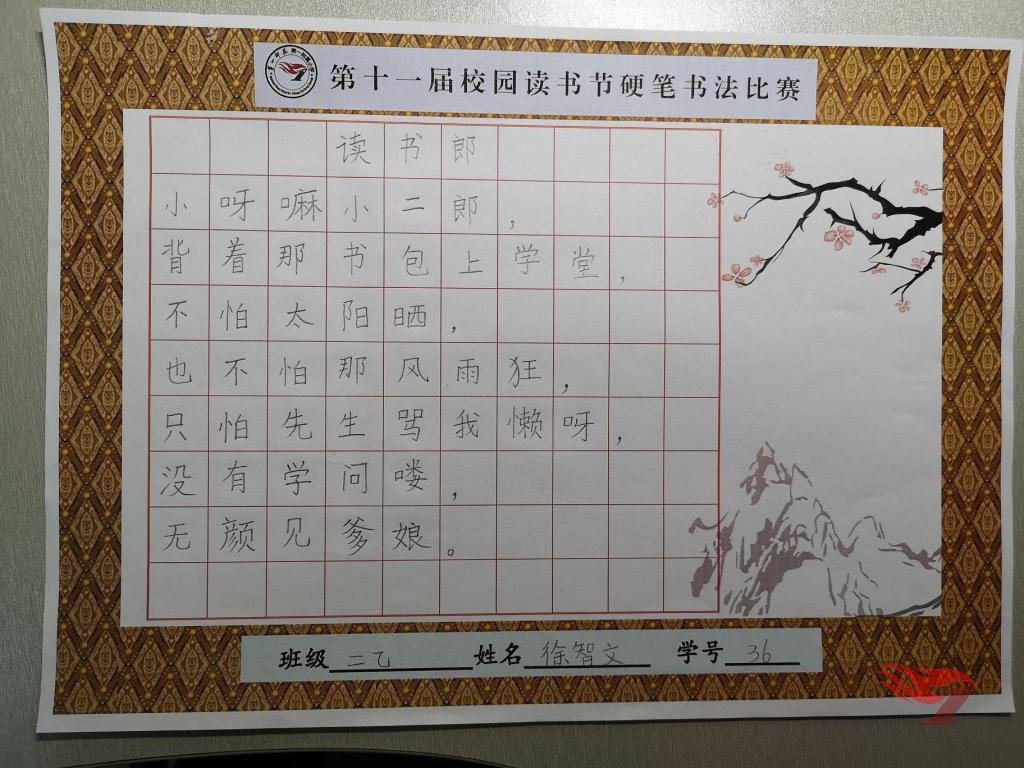 第十一届校园读书节硬笔书法比赛
读书郎
小呀嘛小二郎，
背着那书包上学堂，
不怕太阳晒，
也不怕那风雨狂，
只怕先生骂我懒呀，
没有学问喽，
无颜见爹娘。
班级 二乙 姓名 徐智文 学号 36